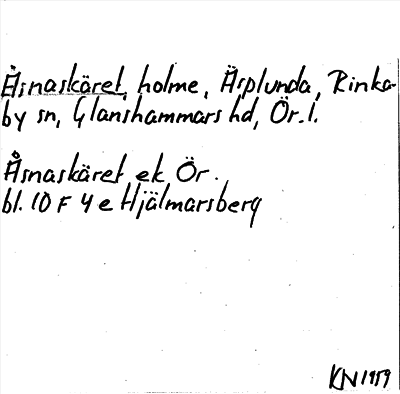 Åsnaskäret, holme, Äsplunda, Rinka-
by sn, Glanshammars hd, Ör. l.
Åsnaskäret ek Ör.
bl. 10 F 4 e Hjälmarsberg
KN 1959